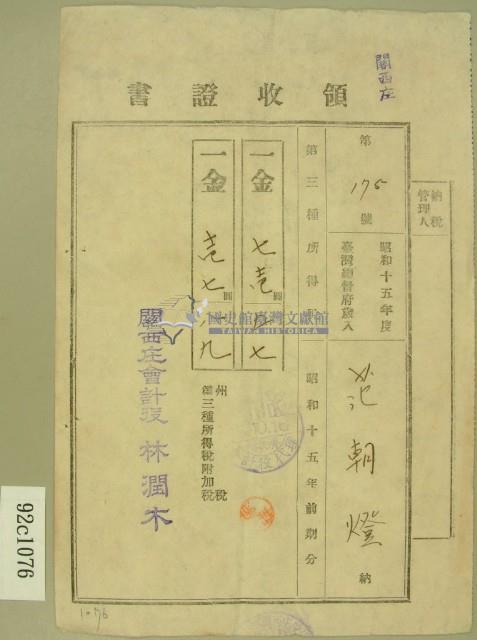 關西庄
領收證書
納稅管理人
第175號
昭和十五年度
臺灣總督府歲入
范朝燈 納
第三種所得稅
昭和十五年前期分
一金 七壱圓
一金 壱七圓
州稅
第三種所得稅附加稅
關西庄會計役 林潤木
國史館臺灣文獻館
TAIWAN HISTORICA
92c1076
1076